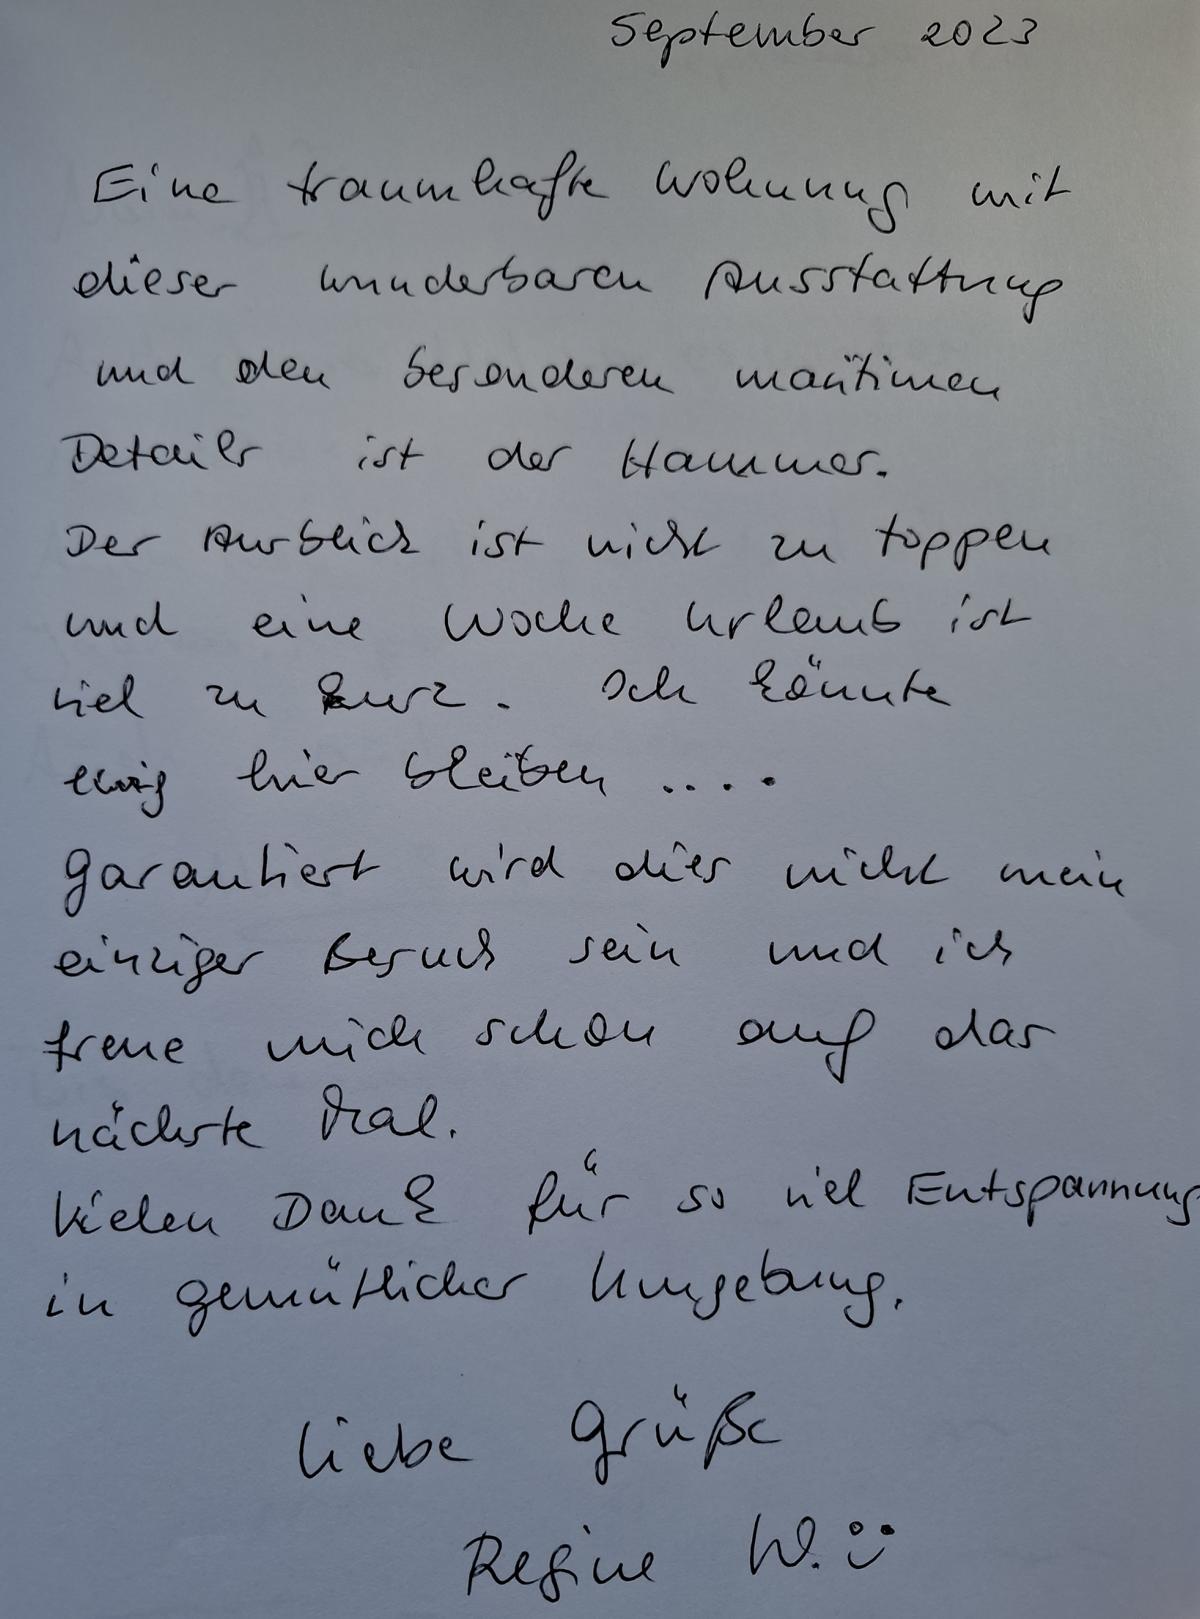 September 2023
Eine traumhafte Wohnung mit
dieser wunderbaren Ausstattung
und den besonderen maritimen
Details ist der Hammer.
Der Ausblick ist nicht zu toppen
und eine Woche Urlaub ist
viel zu kurz. Ich könnte
ewig hier bleiben ....
Garantiert wird dies nicht mein
einziger Besuch sein und ich
freue mich schon auf das
nächste Mal.
Vielen Dank für so viel Entspannung
in gemütlicher Umgebung.
Liebe Grüße
Regine W. :)